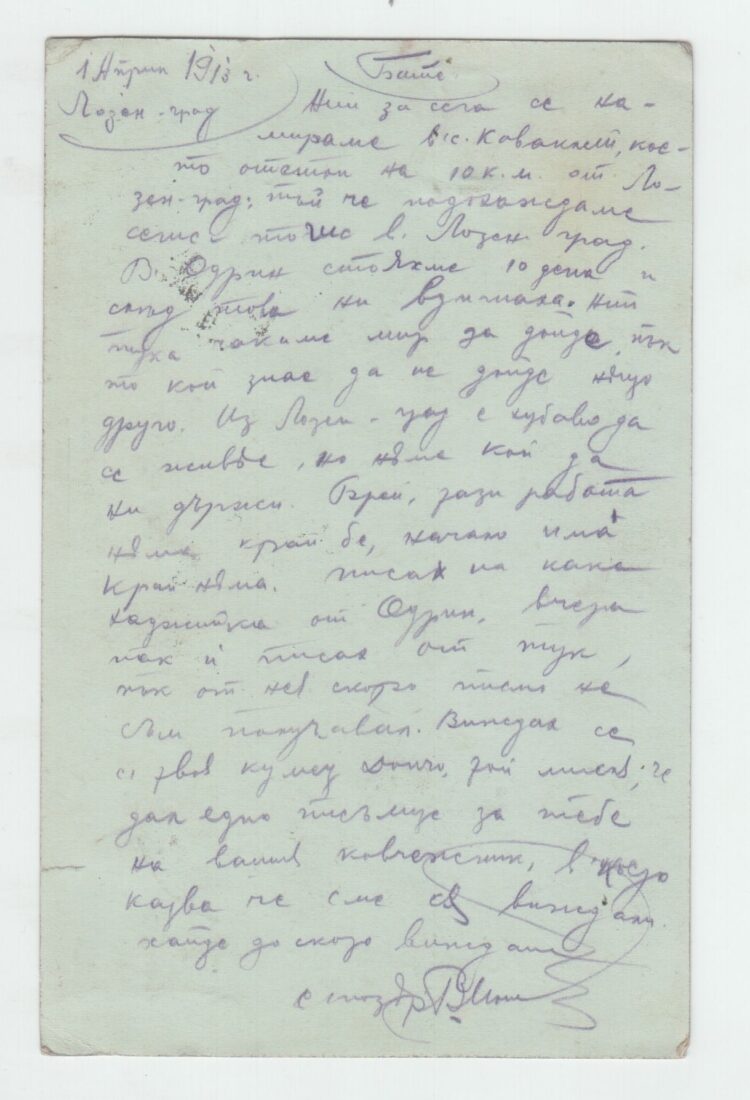 1 Априли 1913 г.
Лозен-град
Бате
Ний за сега се на-
мираме в с. Ковакли, кое-
то отстои на 10 к.м. от Ло-
зен-град; тъй че подохаждаме
в Лозен град.
В Одрин стояхме 10 дена и
след това ни вдигнаха. Ний
тука чакаме мир да дойде, пък
то кой знае да не дойде нящо
друго. Из Лозен-град е хубаво да
се живѣе, но няма кой да
ни държи. Брей, тази работа
няма край бе, начало има
край няма. Писах на кака
Хаджийка от Одрин, вчера
пак й писах от тук,
пък от нея скоро писмо не
съм получавал. Виждах се
с твоя кумец Дончо, той писал, че
дал едно писъмце за тебе
на вашия ковчежник, в което
казва че сме се виждали.
хайде до скоро виждане
с поздр.